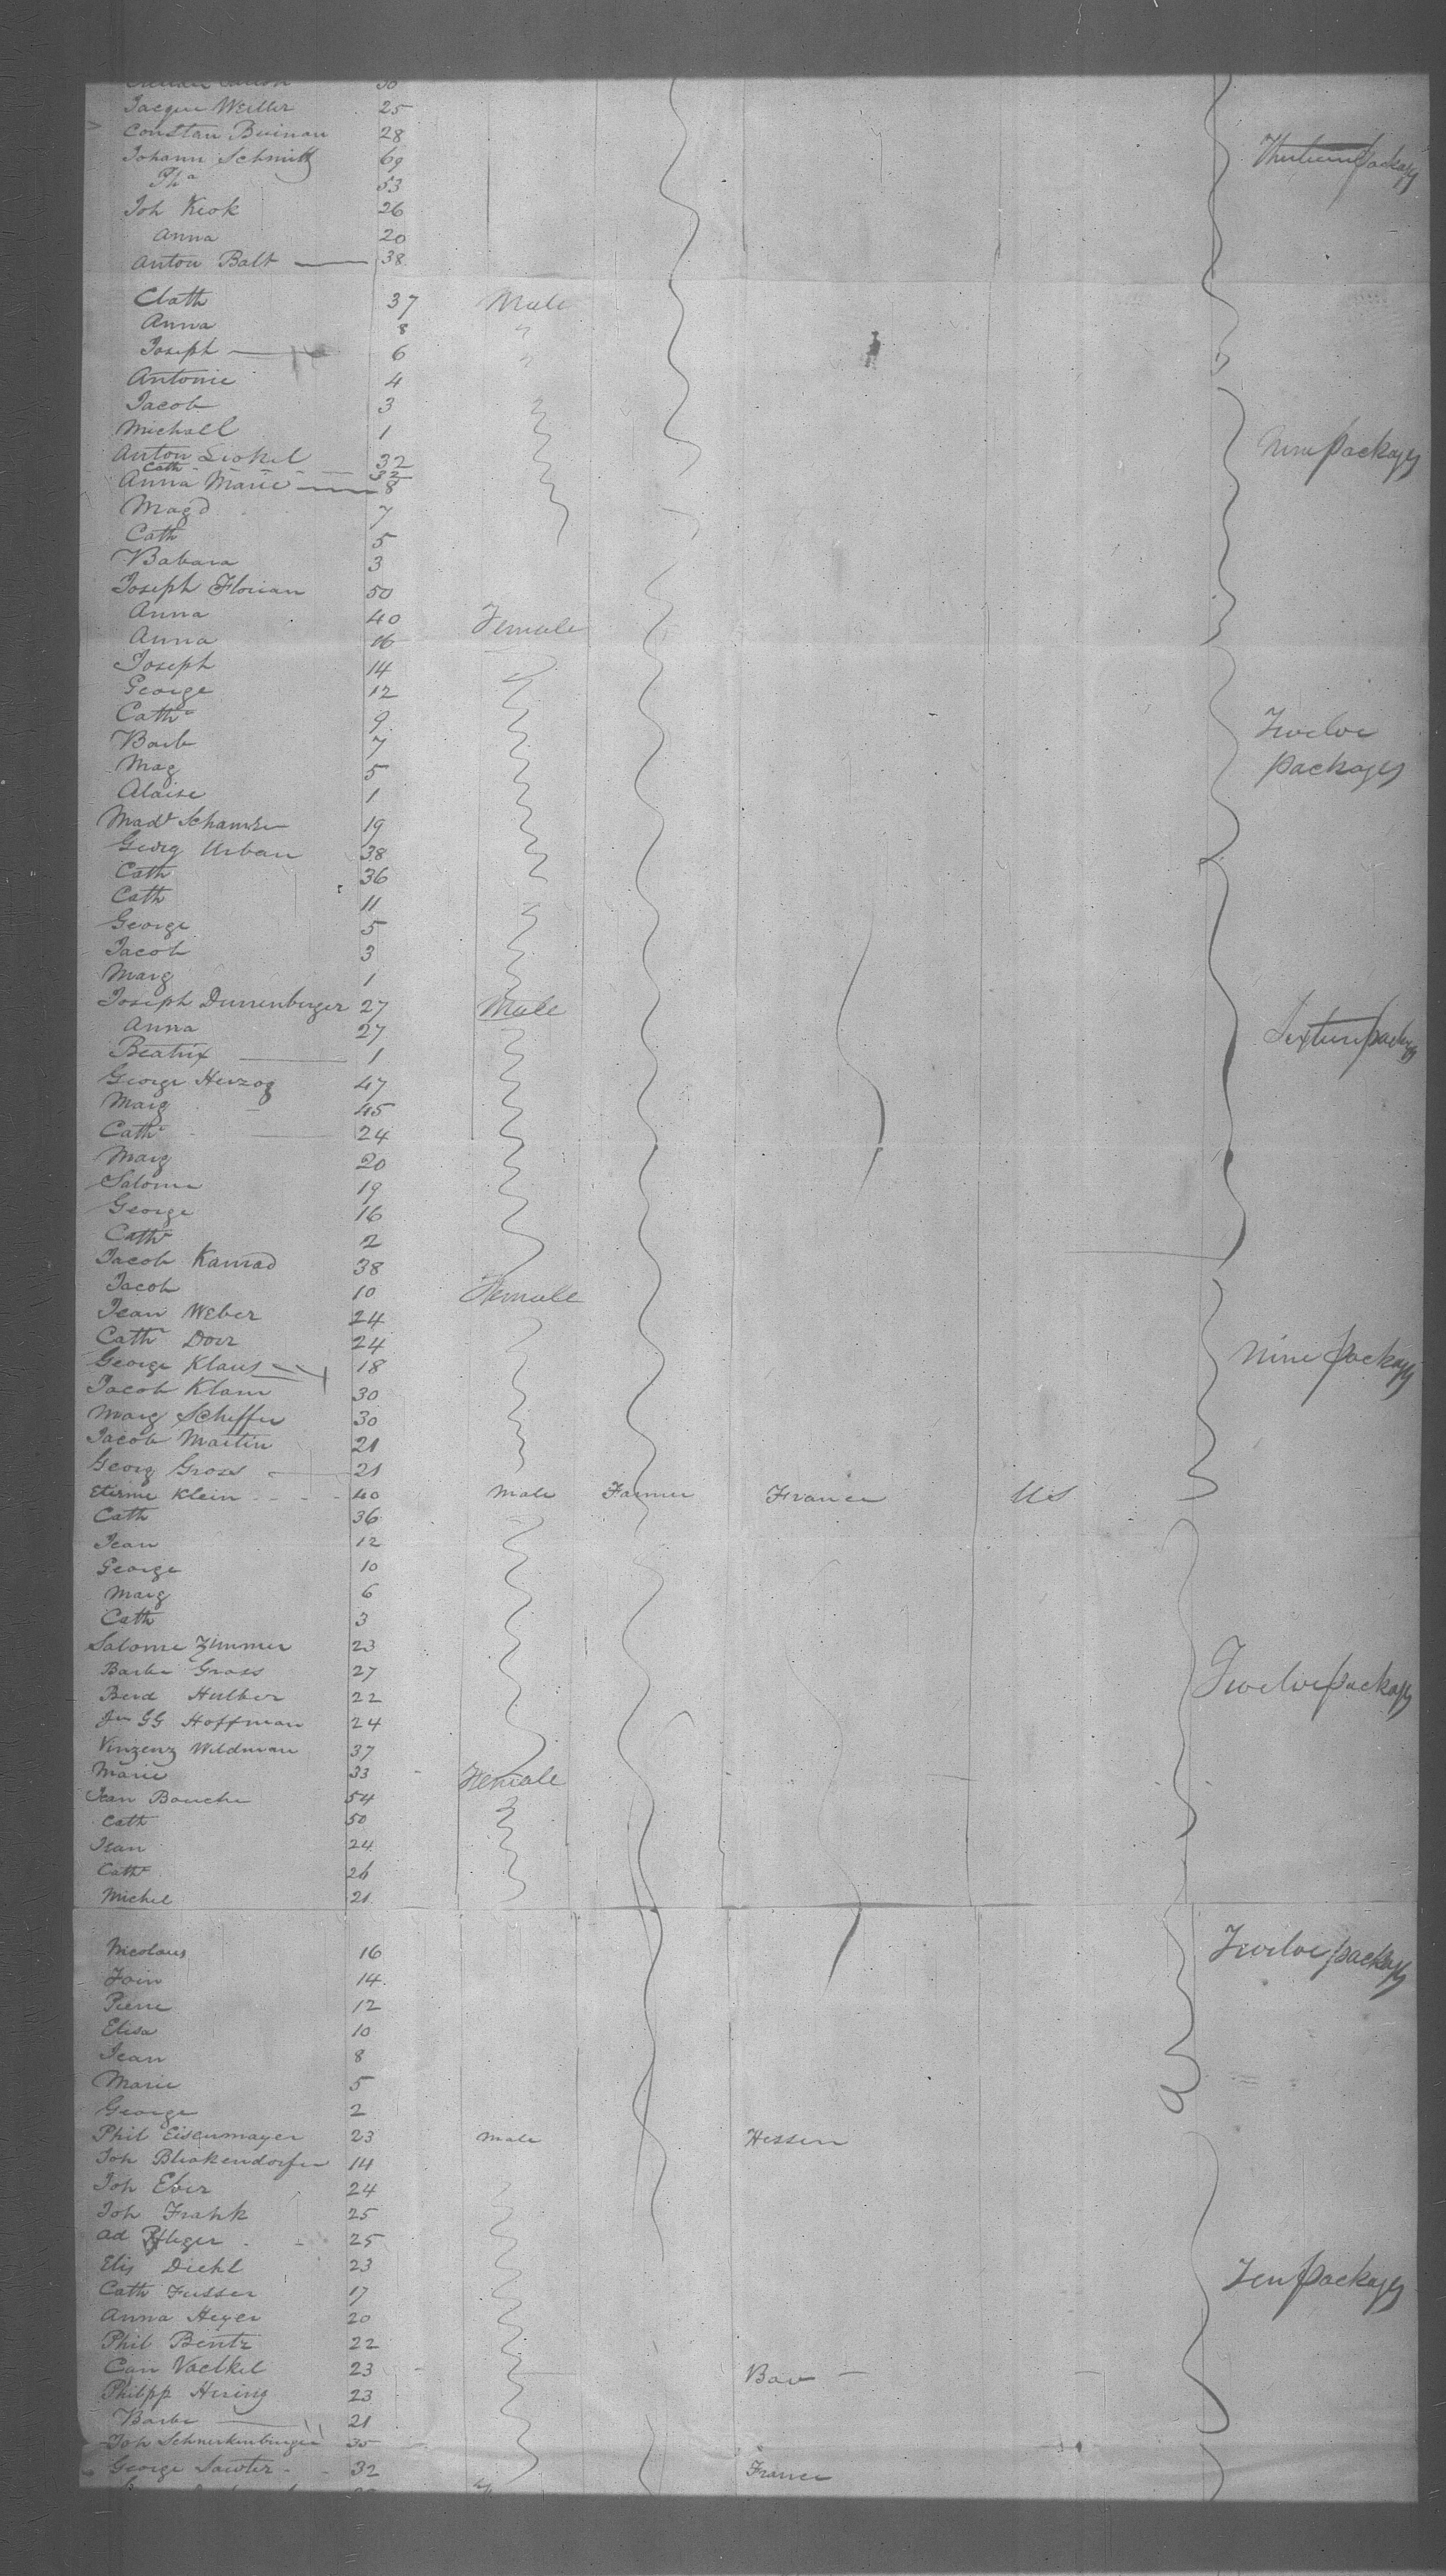 Jacque Weiller 25
Constan Buinan 28
Johann Schmitt 69
53
Joh Keok 26
Anna 20
Anton Balt 38
Cath 37 Male
Anna 8
Joseph 6
Antonie 4
Jacob 3
Michall 1 Nine packages
Anton 32
Cath 32
Anna Marie 8
Magd 7
Cath 5
Babara 3
Joseph Florian 50
Anna 40 Female
Anna 16
Joseph 14
George 12
Cath 9
Barb 7 Twelve
Mag 5 packages
Aloise 1
Mad 19
Georg Urban 38
Cath 36
Cath 11
George 5
Jacob 3
Marg 1
Joseph Durrenberger 27 Male
Anna 27
Beatrix 1
George Herzog 47
Marg 45
Cath 24
Marg 20
Salome 19
George 16
Cath 2
Jacob Kamad 38
Jacob 10 Female
Jean Weber 24
Cath Dorr 24
George Klaus 18 Nine packages
Jacob Klam 30
Marg Scheffer 30
Jacob Martin 21
Georg Gross 21
Etienne Klein 40 Male Farmer France US
Cath 36
Jean 12
George 10
Marg 6
Cath 3
Salome Zimmer 23
Barbe Gross 27 Twelve packages
Berd Hulber 22
Jn GG Hoffman 24
Vinzenz Wildman 37
Marie 33 Female
Jean Bouche 54
Cath 50
Jean 24
Cath 26
Michel 21
Nicolaus 16 Twelve packages
14
Pierre 12
Elisa 10
Jean 8
Marie 5
George 2
Phil Eisenmayer 23 Male Hessen
Joh Bliakendorfer 14
Joh Eber 24
Joh Frank 25
Ad Pfleger 25
Elis Diehl 23
Cath Fusser 17 Ten packages
Anna Heyer 20
Phil Bentz 22
Voelkel 23 Bav
Philipp Hering 23
Barbe 21
Joh 35
George Sawter 32 France